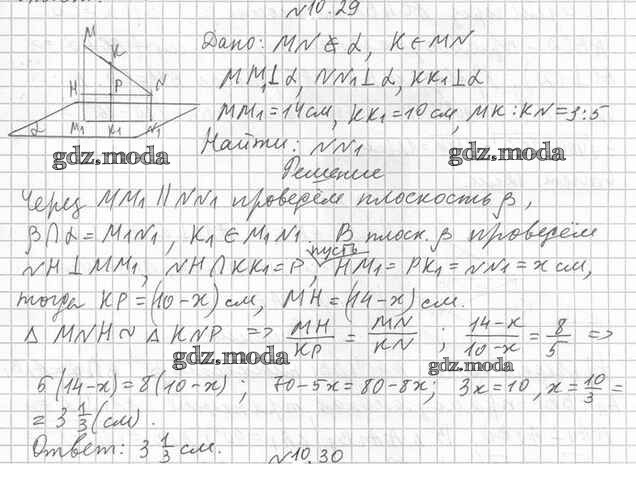 №10.29
Дано: MN ∉ α, K ∈ MN
MM₁⊥α, NN₁⊥α, KK₁⊥α
MM₁=14см, KK₁=10см, MK:KN=3:5
Найти: NN₁
M
K
H P N
α M₁ K₁ N₁
gdz.moda gdz.moda
Решение
Через MM₁ ∥ NN₁ проведём плоскость β,
β∩α=M₁N₁, K₁∈M₁N₁. В плоск. β проведём
пусть
NH⊥MM₁, NH∩KK₁=P, HM₁=PK₁=NN₁=x см,
тогда KP=(10-x) см, MH=(14-x) см.
Δ MNH ~ Δ KNP => MH/KP = MN/KN ; 14-x/10-x = 8/5 =>
gdz.moda gdz.moda
5(14-x)=8(10-x); 70-5x=80-8x; 3x=10, x=10/3=
=3 1/3 (см).
Ответ: 3 1/3 см.
№10.30